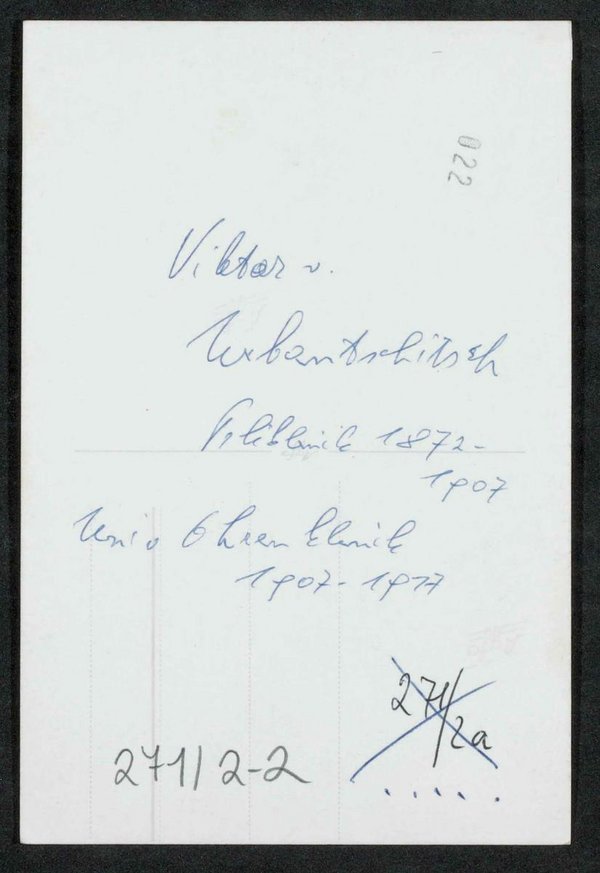 022
Viktor v.
Urbantschitsch
Poliklinik 1872-
1907
Univ Ohrenklinik
1907-1917
271/2a
271/2-2